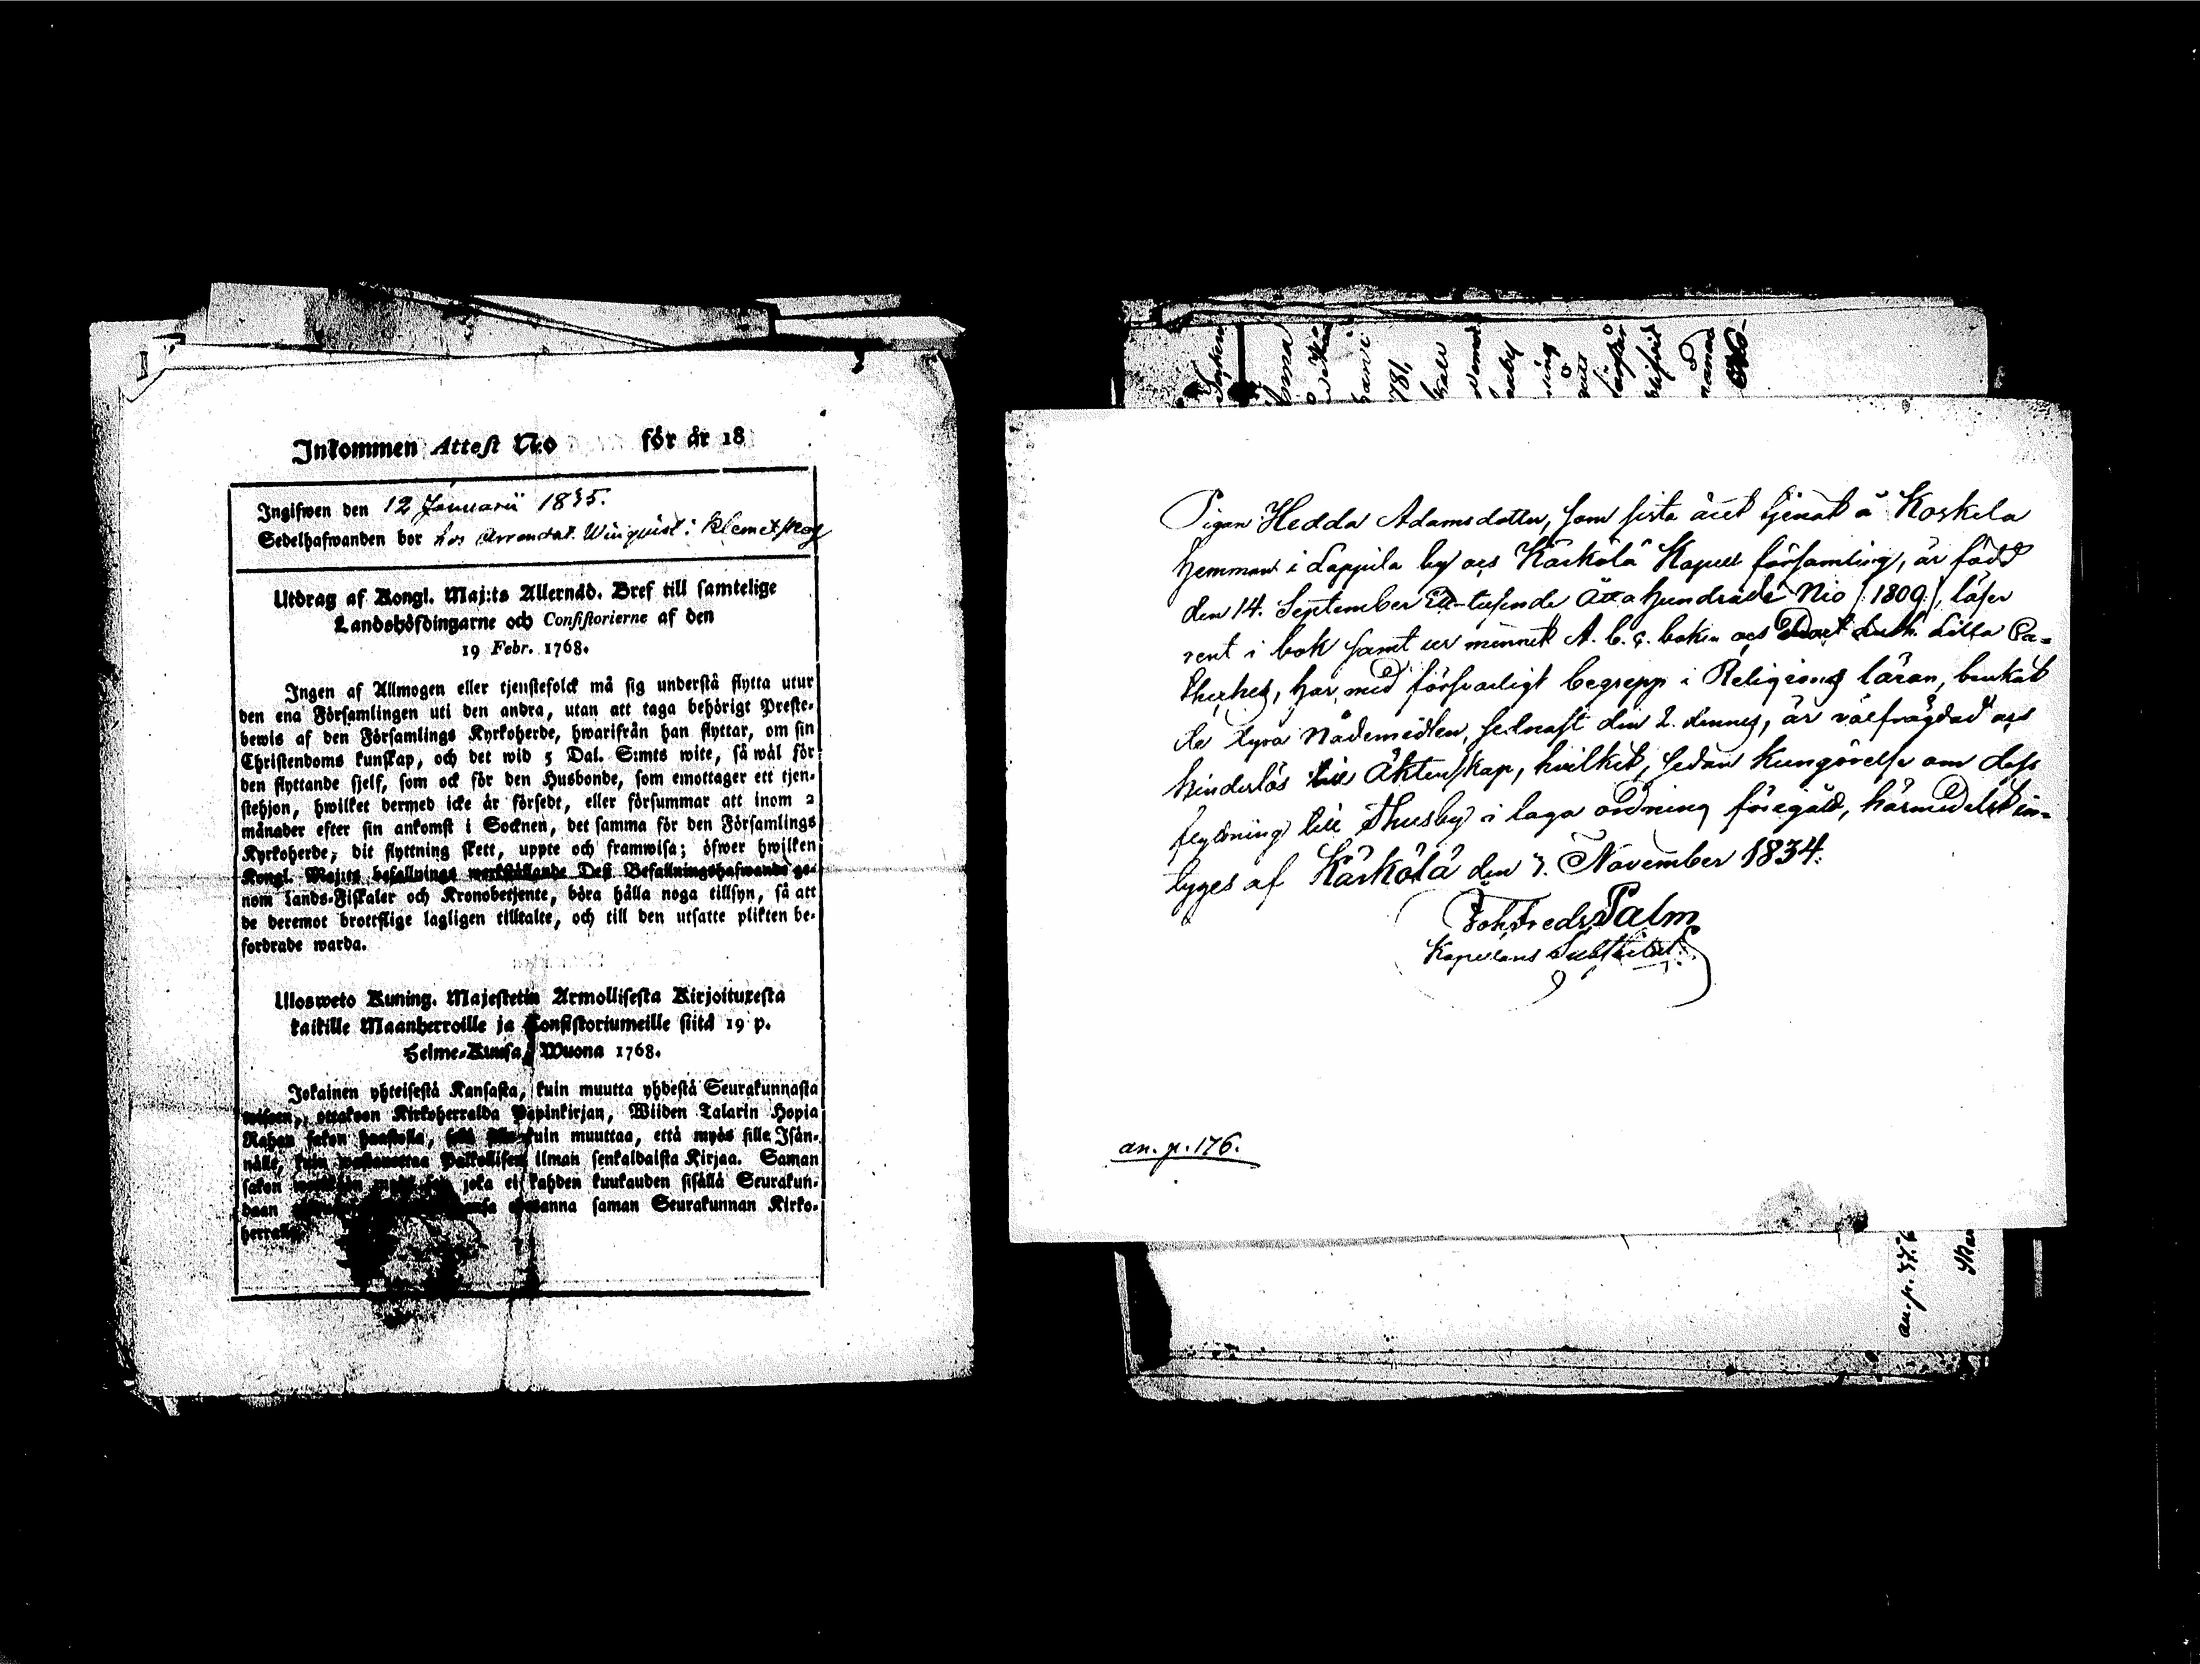 Inkommen Attest No för år 18
Ingifwen den 12 Januarii 1835.
Sedelhafwanden bor hos Arrendat. Winqvist i Klemetskog
Utdrag af Kongl. Maj:ts Allernåd. Bref till samtelige
Landshöfdingarne och Consistorierne af den
19 Febr. 1768.
Ingen af Allmogen eller tjenstefolck må sig understå flytta utur
den ena Församlingen uti den andra, utan att taga behörigt Preste-
bewis af den Församlings Kyrkoherde, hwarifrån han flyttar, om sin
Christendoms kunskap, och det wid 5 Dal. S:mts wite, så wäl för
den flyttande sjelf, som ock för den Husbonde, som emottager ett tjen-
stehjon, hwilket dermed icke är försedt, eller försummar att inom 2
månader efter sin ankomst i Socknen, det samma för den Församlings
Kyrkoherde, dit flyttning skett, uppte och framwisa; öfwer hwilken
Kongl. Maj:ts befallnings werkställande Dess Befallningshafwande ge-
nom Lands-Fiskaler och Kronobetjente, böra hålla noga tillsyn, så att
de deremot brottslige lagligen tilltalte, och till den utsatte plikten be-
fordrade warda.
Ulosweto Kuning. Majestetin Armollisesta Kirjoituxesta
kaikille Maanherroille ja Consistoriumeille siitä 19 p.
Helme-Kuusa, Wuona 1768.
Jokainen yhteisestä Kansasta, kuin muutta yhdestä Seurakunnasta
ottakoon Kirkoherralda Papinkirjan, Wiiden Talarin Hopia
Rahan sakon haastolla, kuin muuttaa, että myös sille Isän-
nälle, kuin Palkollisen ilman senkaldaista Kirjaa. Saman
sakon joka ei kahden kuukauden sisällä Seurakun-
daan saman Seurakunnan Kirko-
herralle
Pigan Hedda Adamsdotter, som sista året tjenat å Koskela
hemman i Lappila by och Kärkölä Kapell församling, är född
den 14. September Ett-tusende Åtta hundrade Nio (1809), läser
rent i bok samt ur minnet A. b. c. boken och Doct. Luth. Lilla Ca-
theches, har med försvarligt begrepp i Religions läran, benkat
de dyra Nådemedlen, sednast den 2. dennes, är välfrägdad och
hinderlös till Äktenskap, hvilket, sedan kungörelse om dess
flyttning till Thusby i laga ordning föregått, härmedelst in-
tyges af Kärkölä den 7. November 1834.
Joh. Fredr. Palm
Kapellans Substitut.
an. p. 176.